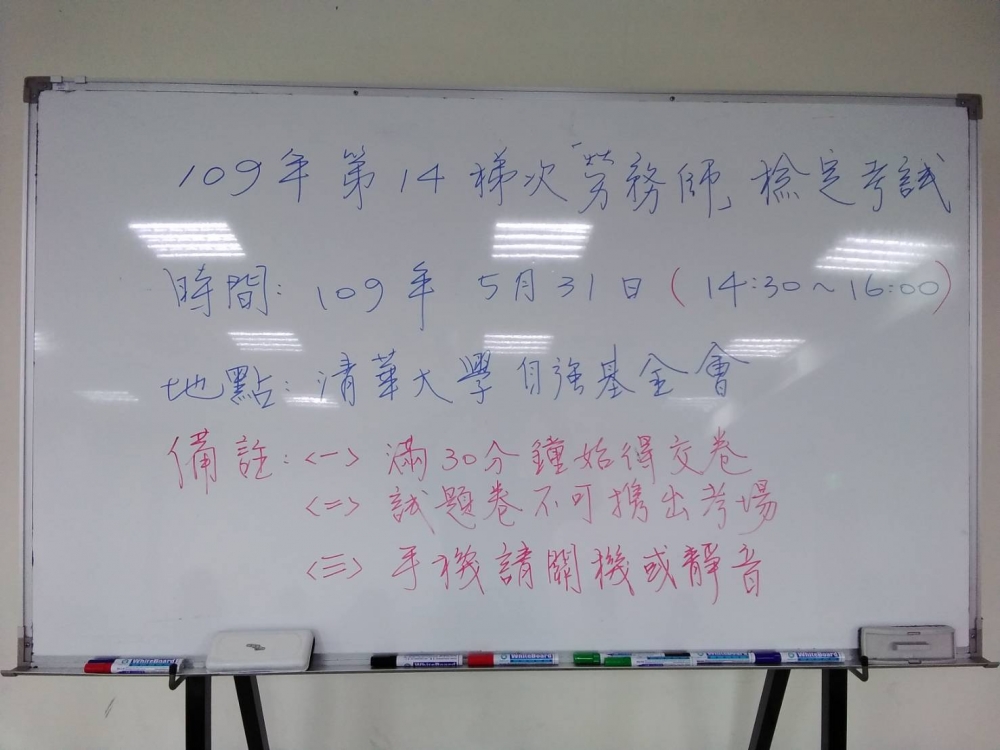 109年第14梯次「勞務師」檢定考試
時間：109年 5月31日(14:30~16:00)
地點：清華大學自強基金會
備註：<一> 滿30分鐘始得交卷
<二> 試題卷不可攜出考場
<三> 手機請關機或靜音
WhiteBoard
WhiteBoard
WhiteBoard
WhiteBoard
WhiteBoard